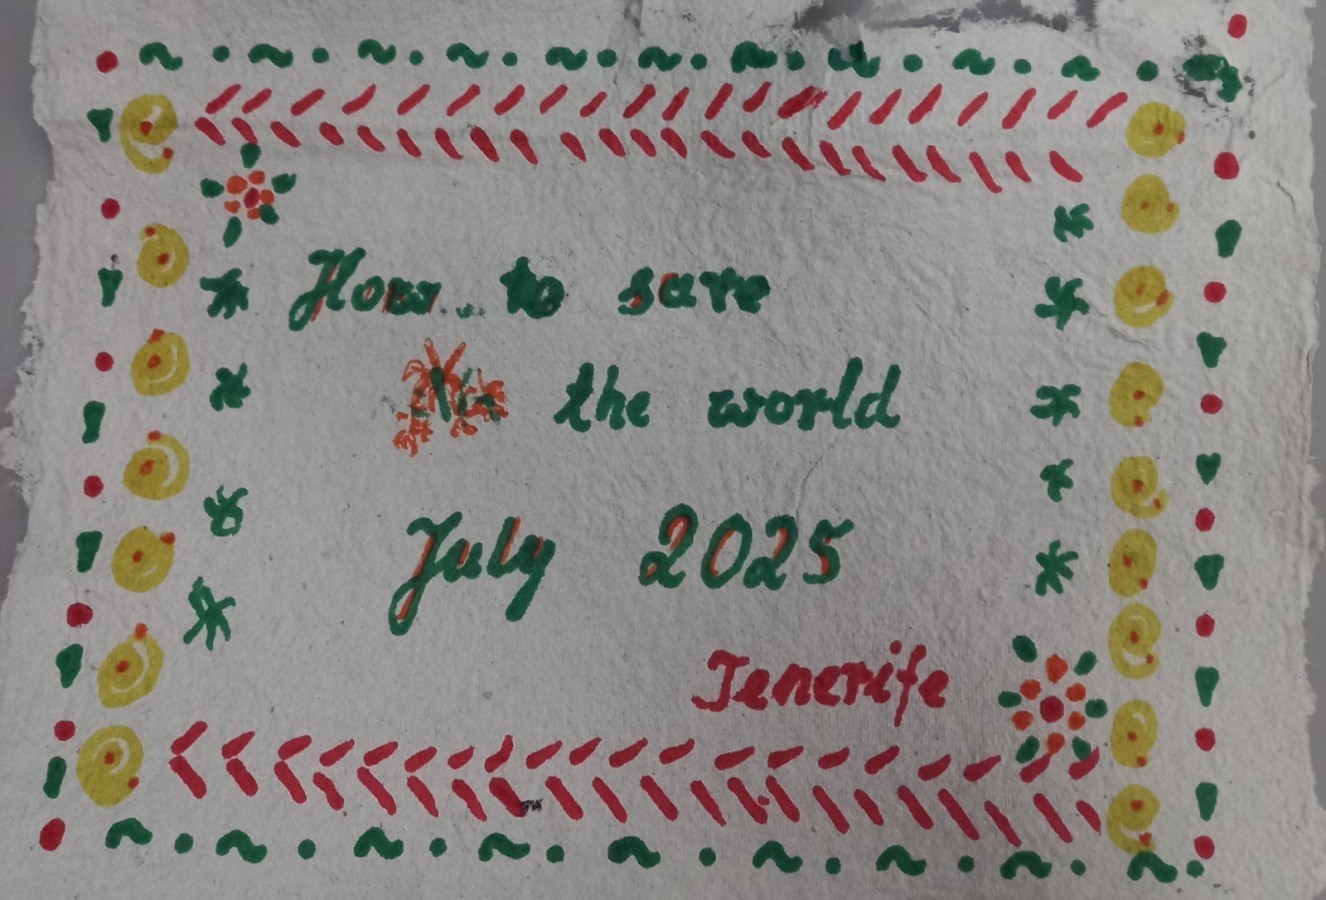 How to save
the world
July 2025
Tenerife